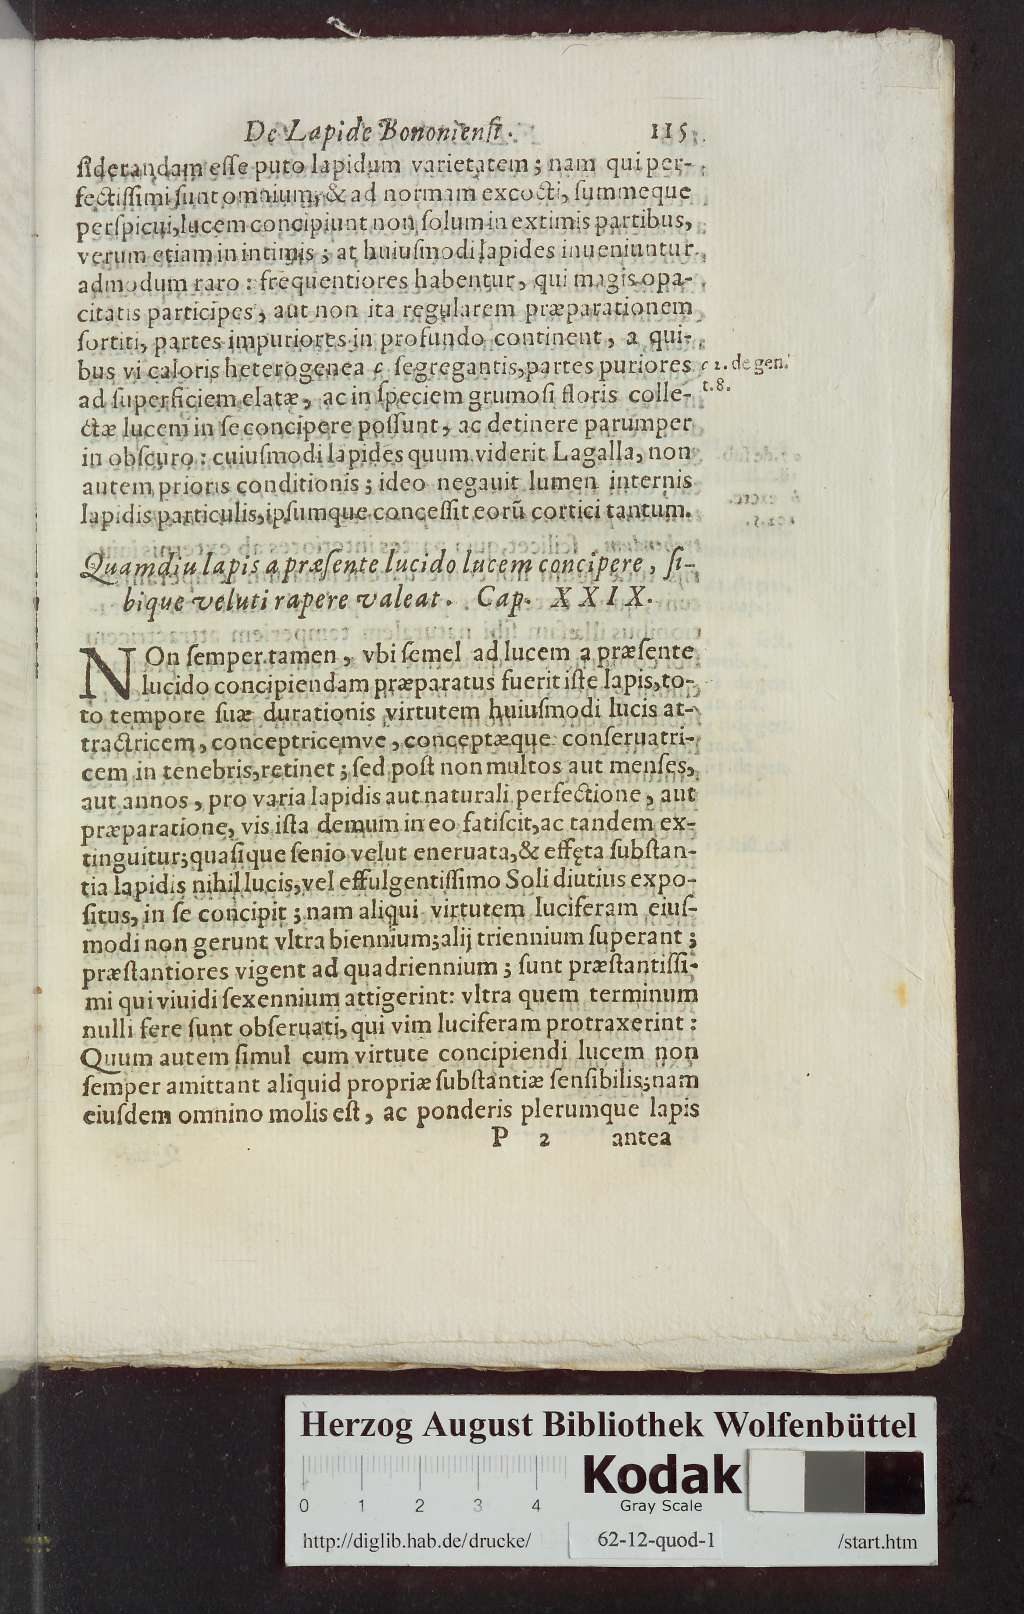 De Lapide Bononiensi. 115.
siderandam esse puto lapidum varietatem; nam qui per-
fectissimi sunt omnium, & ad normam excocti, summeque
perspicui, lucem concipiunt non solum in extimis partibus,
verum etiam in intimis; at huiusmodi lapides inueniuntur
admodum raro: frequentiores habentur, qui magis opa-
citatis participes, aut non ita regularem præparationem
sortiti, partes impuriores in profundo continent, a qui-
bus vi caloris heterogenea c segregantis, partes puriores
c 2. de gen.
t.8.
ad superficiem elatæ, ac in speciem grumosi floris colle-
ctæ lucem in se concipere possunt, ac detinere parumper
in obscuro: cuiusmodi lapides quum viderit Lagalla, non
autem prioris conditionis; ideo negauit lumen internis
lapidis particulis, ipsumque concessit eorũ cortici tantum.
Quamdiu lapis a præsente lucido lucem concipere, si-
bique veluti rapere valeat. Cap. XXIX.
NOn semper tamen, vbi semel ad lucem a præsente
lucido concipiendam præparatus fuerit iste lapis, to-
to tempore suæ durationis virtutem huiusmodi lucis at-
tractricem, conceptricemve, conceptæque conseruatri-
cem in tenebris, retinet; sed post non multos aut menses,
aut annos, pro varia lapidis aut naturali perfectione, aut
præparatione, vis ista demum in eo fatiscit, ac tandem ex-
tinguitur; quasique senio velut eneruata, & effęta substan-
tia lapidis nihil lucis, vel effulgentissimo Soli diutius expo-
situs, in se concipit; nam aliqui virtutem luciferam eius-
modi non gerunt vltra biennium; alij triennium superant;
præstantiores vigent ad quadriennium; sunt præstantissi-
mi qui viuidi sexennium attigerint: vltra quem terminum
nulli fere sunt obseruati, qui vim luciferam protraxerint:
Quum autem simul cum virtute concipiendi lucem non
semper amittant aliquid propriæ substantiæ sensibilis; nam
eiusdem omnino molis est, ac ponderis plerumque lapis
P 2 antea
Herzog August Bibliothek Wolfenbüttel
0 1 2 3 4
Kodak
Gray Scale
http://diglib.hab.de/drucke/ 62-12-quod-1 /start.htm